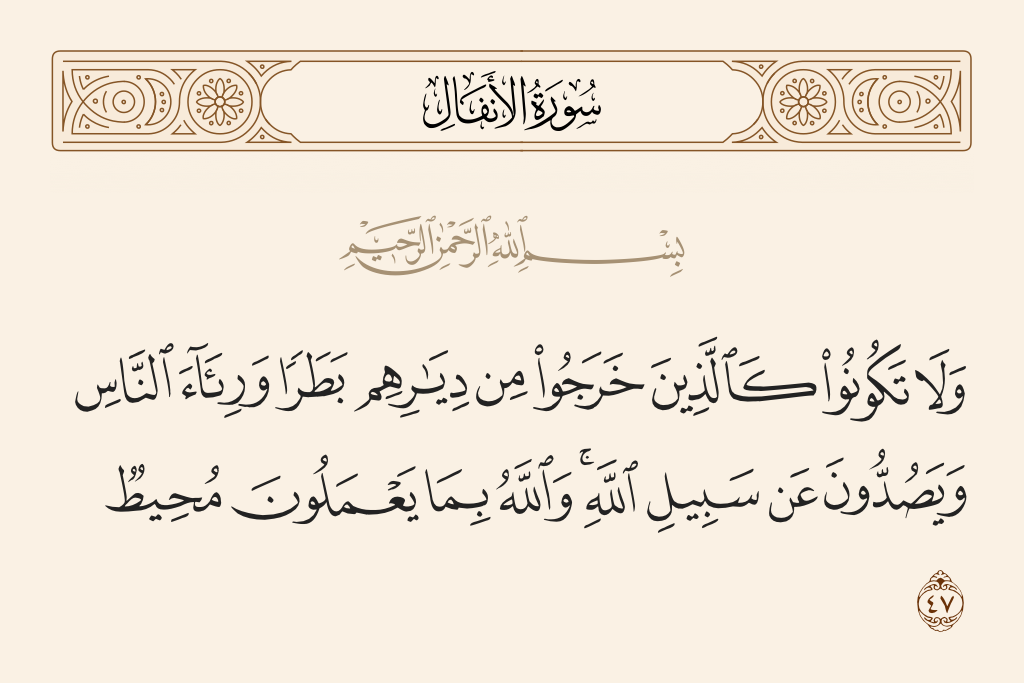 سُورَةُ الأَنفَالِ
بِسْمِ ٱللَّهِ ٱلرَّحْمَٰنِ ٱلرَّحِيمِ
وَلَا تَكُونُوا۟ كَٱلَّذِينَ خَرَجُوا۟ مِن دِيَـٰرِهِم بَطَرًا وَرِئَآءَ ٱلنَّاسِ
وَيَصُدُّونَ عَن سَبِيلِ ٱللَّهِ ۚ وَٱللَّهُ بِمَا يَعْمَلُونَ مُحِيطٌ
٤٧